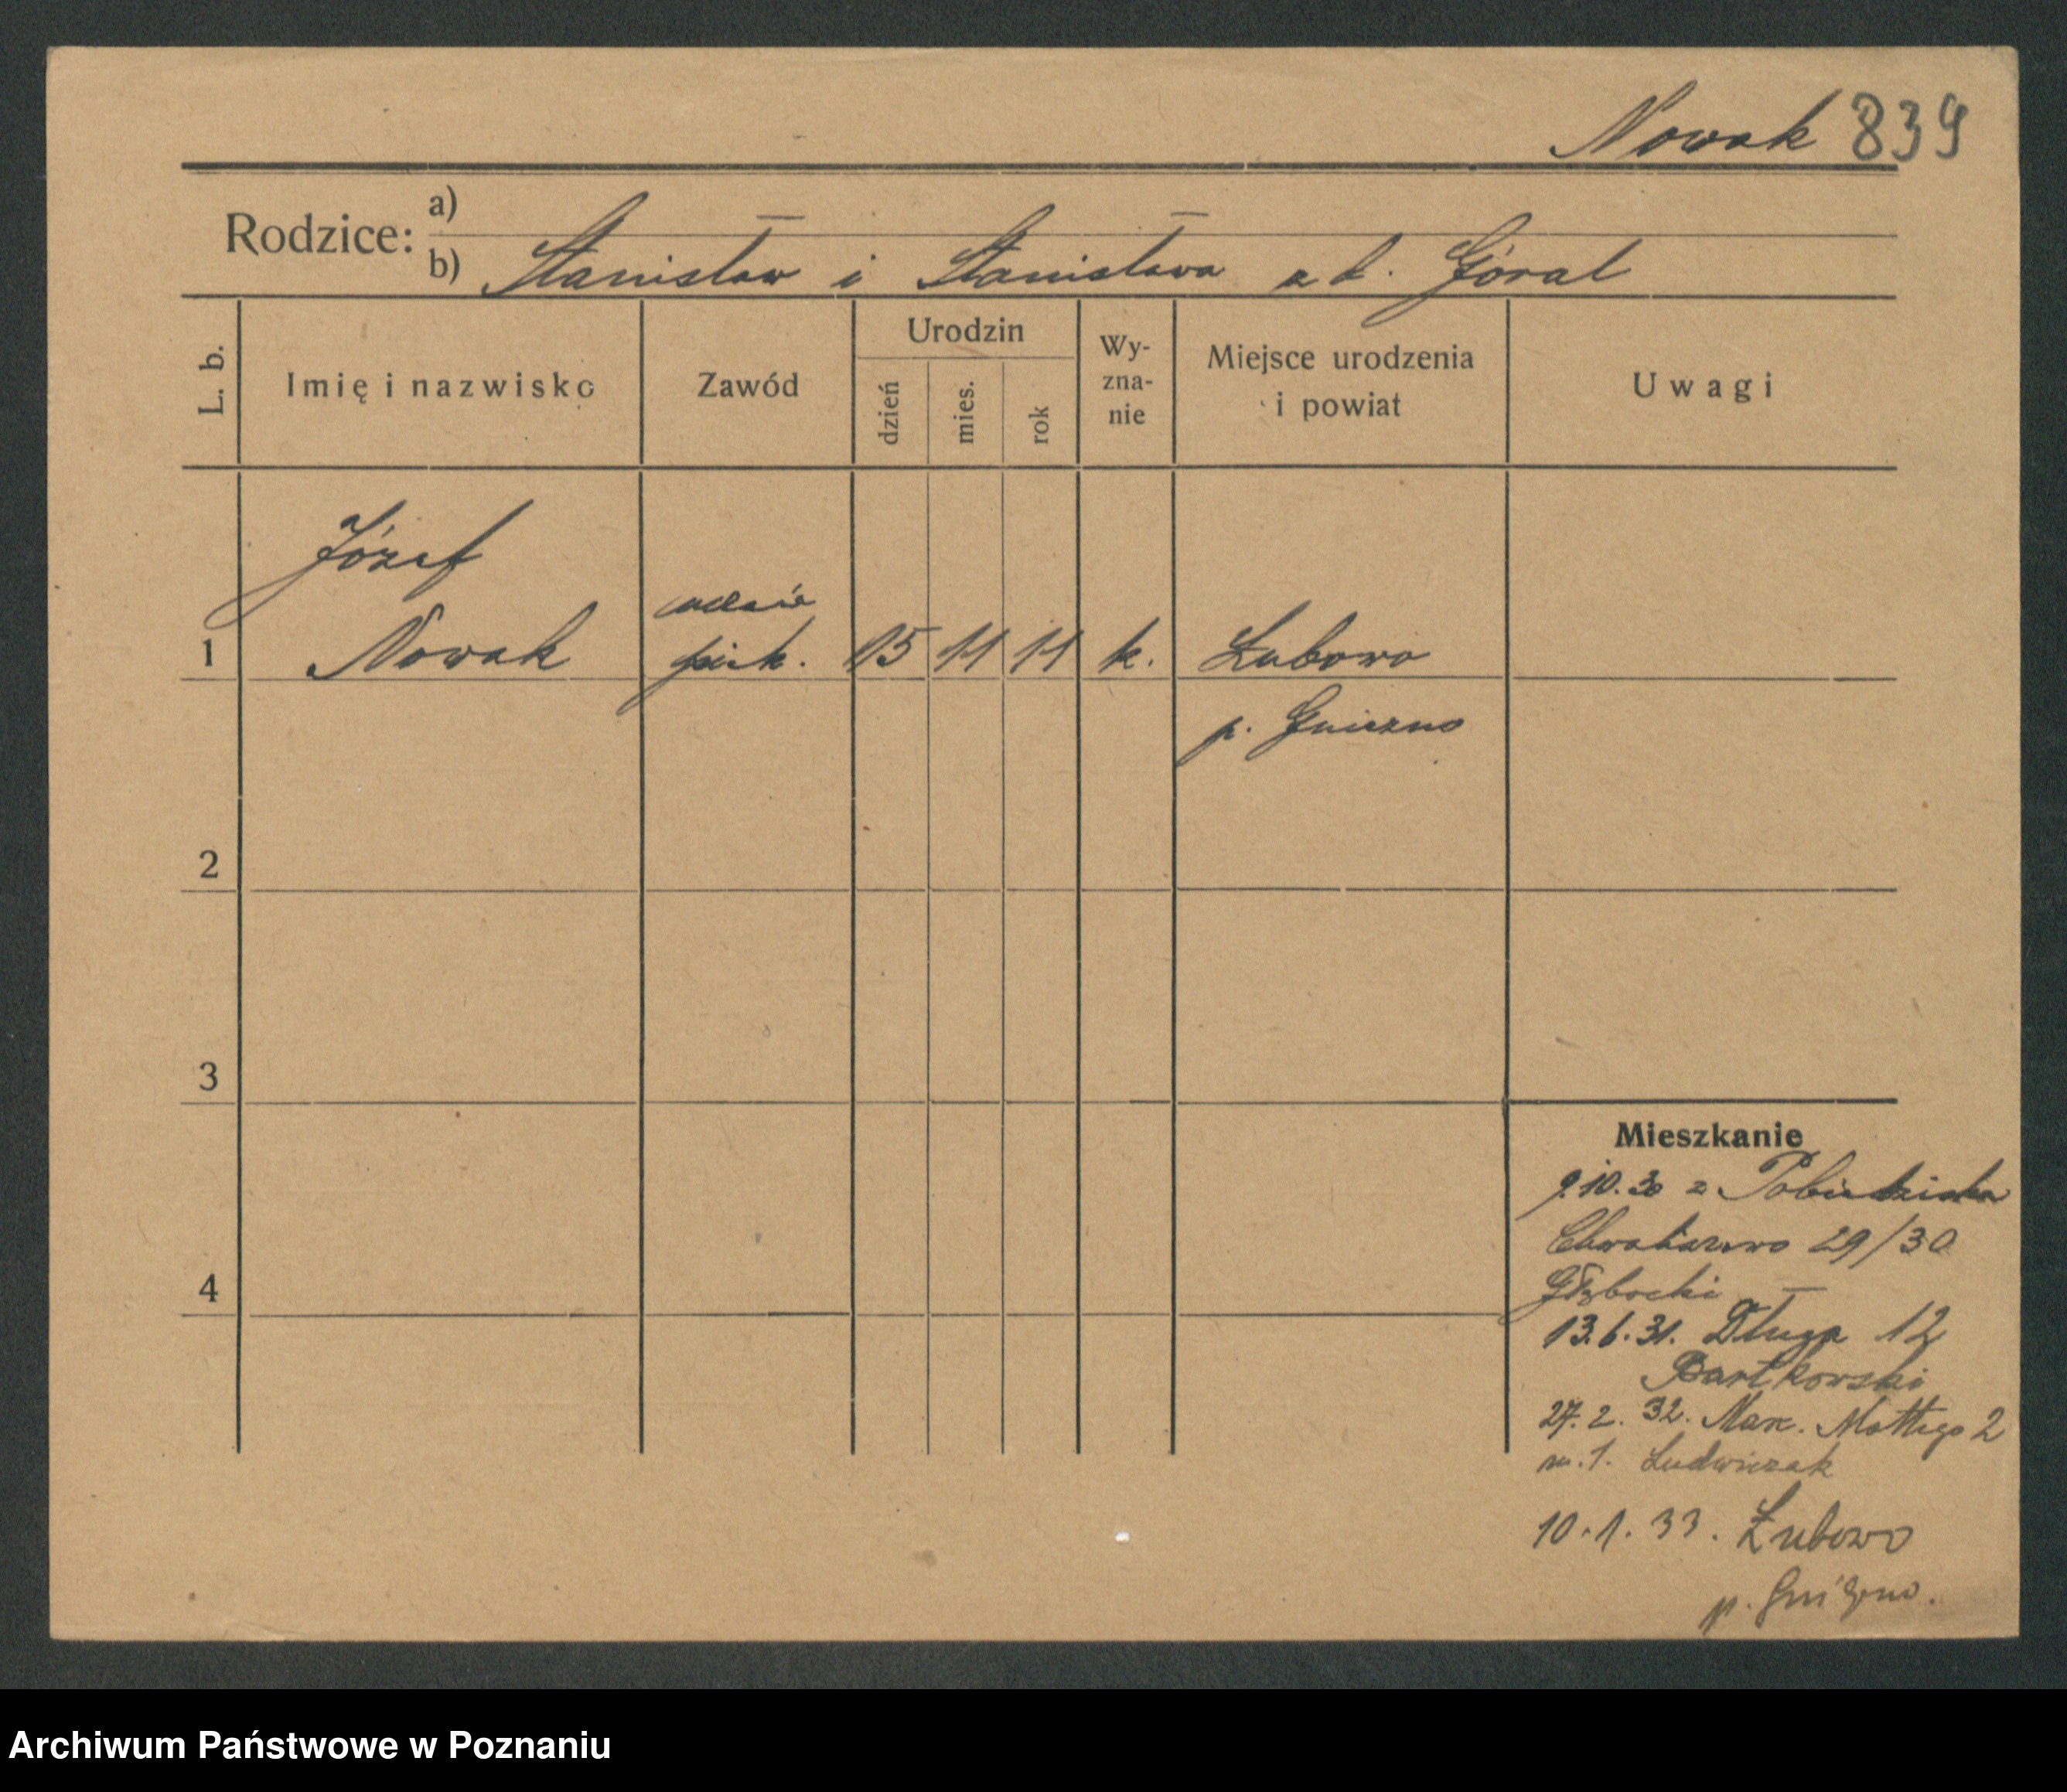 Nowak 839
Rodzice: a)
b) Stanisław i Stanisława z d. Góral
L. b.
Imię i nazwisko
Zawód
Urodzin
dzień
mies.
rok
Wy-
zna-
nie
Miejsce urodzenia
i powiat
Uwagi
Józef
uczeń
1 Nowak piek. 15 11 11 k. Łubowo
p. Gniezno
2
3
4
Mieszkanie
9.10.30 z Pobiedziska
Chwaliszewo 29/30
Głębocki
13.6.31. Długa 12
Bartkowski
27.2.32. Mar. Mottego 2
m. 1. Ludwiczak
10.1.33. Łubowo
p. Gniezno.
Archiwum Państwowe w Poznaniu